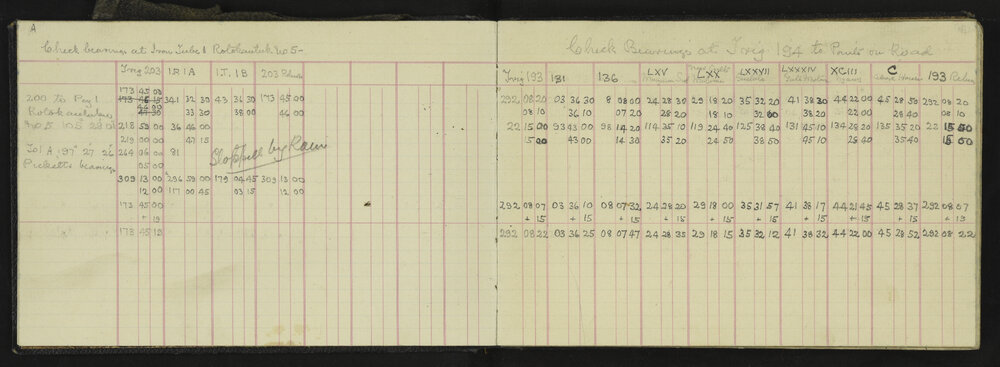 A
Check bearings at Iron Tube 1 Rotokautuku No 5-
Trig 203 I.R 1A I.T. 1B 203 Return
173 45 00
200 to Peg 1 173 45 15 341 32 30 43 36 30 173 45 00
46 00
Rotokautuku 33 30 38 00 46 00
No 5 105 23 01 218 59 00 36 46 00
219 00 00 47 15
To 1 A 197° 27' 26" 264 06 00 81
Stopped by Rain
Picketts bearings 05 00
309 13 00 296 59 00 179 04 45 309 13 00
12 00 117 00 45 03 15 12 00
173 45 00
+ 15
173 45 15
Check Bearings at Trig 194 to Points on Road
Trig 193 131 136 LXV LXX LXXXVII LXXXIV XCIII C 193 Return
292 08 20 03 36 30 8 08 00 24 28 30 29 18 20 35 32 20 41 38 30 44 22 00 45 28 50 292 08 20
08 10 36 10 07 20 28 20 18 10 32 00 38 20 22 00 28 40 08 10
22 15 00 93 43 00 98 14 20 114 35 10 119 24 40 125 38 40 131 45 10 134 28 20 135 35 20 22 15 00
15 00 43 00 14 30 35 20 24 50 38 50 45 10 28 40 35 40 15 00
292 08 07 03 36 10 08 07 32 24 28 20 29 18 00 35 31 57 41 38 17 44 21 45 45 28 37 292 08 07
+ 15 + 15 + 15 + 15 + 15 + 15 + 15 + 15 + 15 + 15
292 08 22 03 36 25 08 07 47 24 28 35 29 18 15 35 32 12 41 38 32 44 22 00 45 28 52 292 08 22